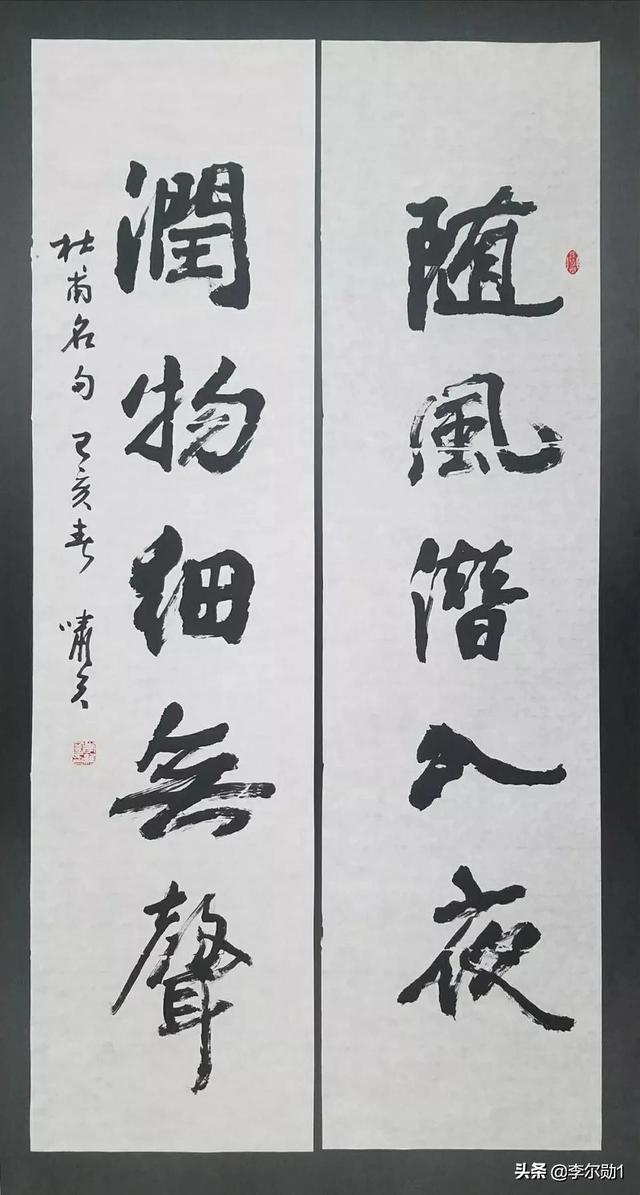 随風潜入夜
潤物細無聲
杜甫名句 己亥春 嘯天
头条 @李尔勋1